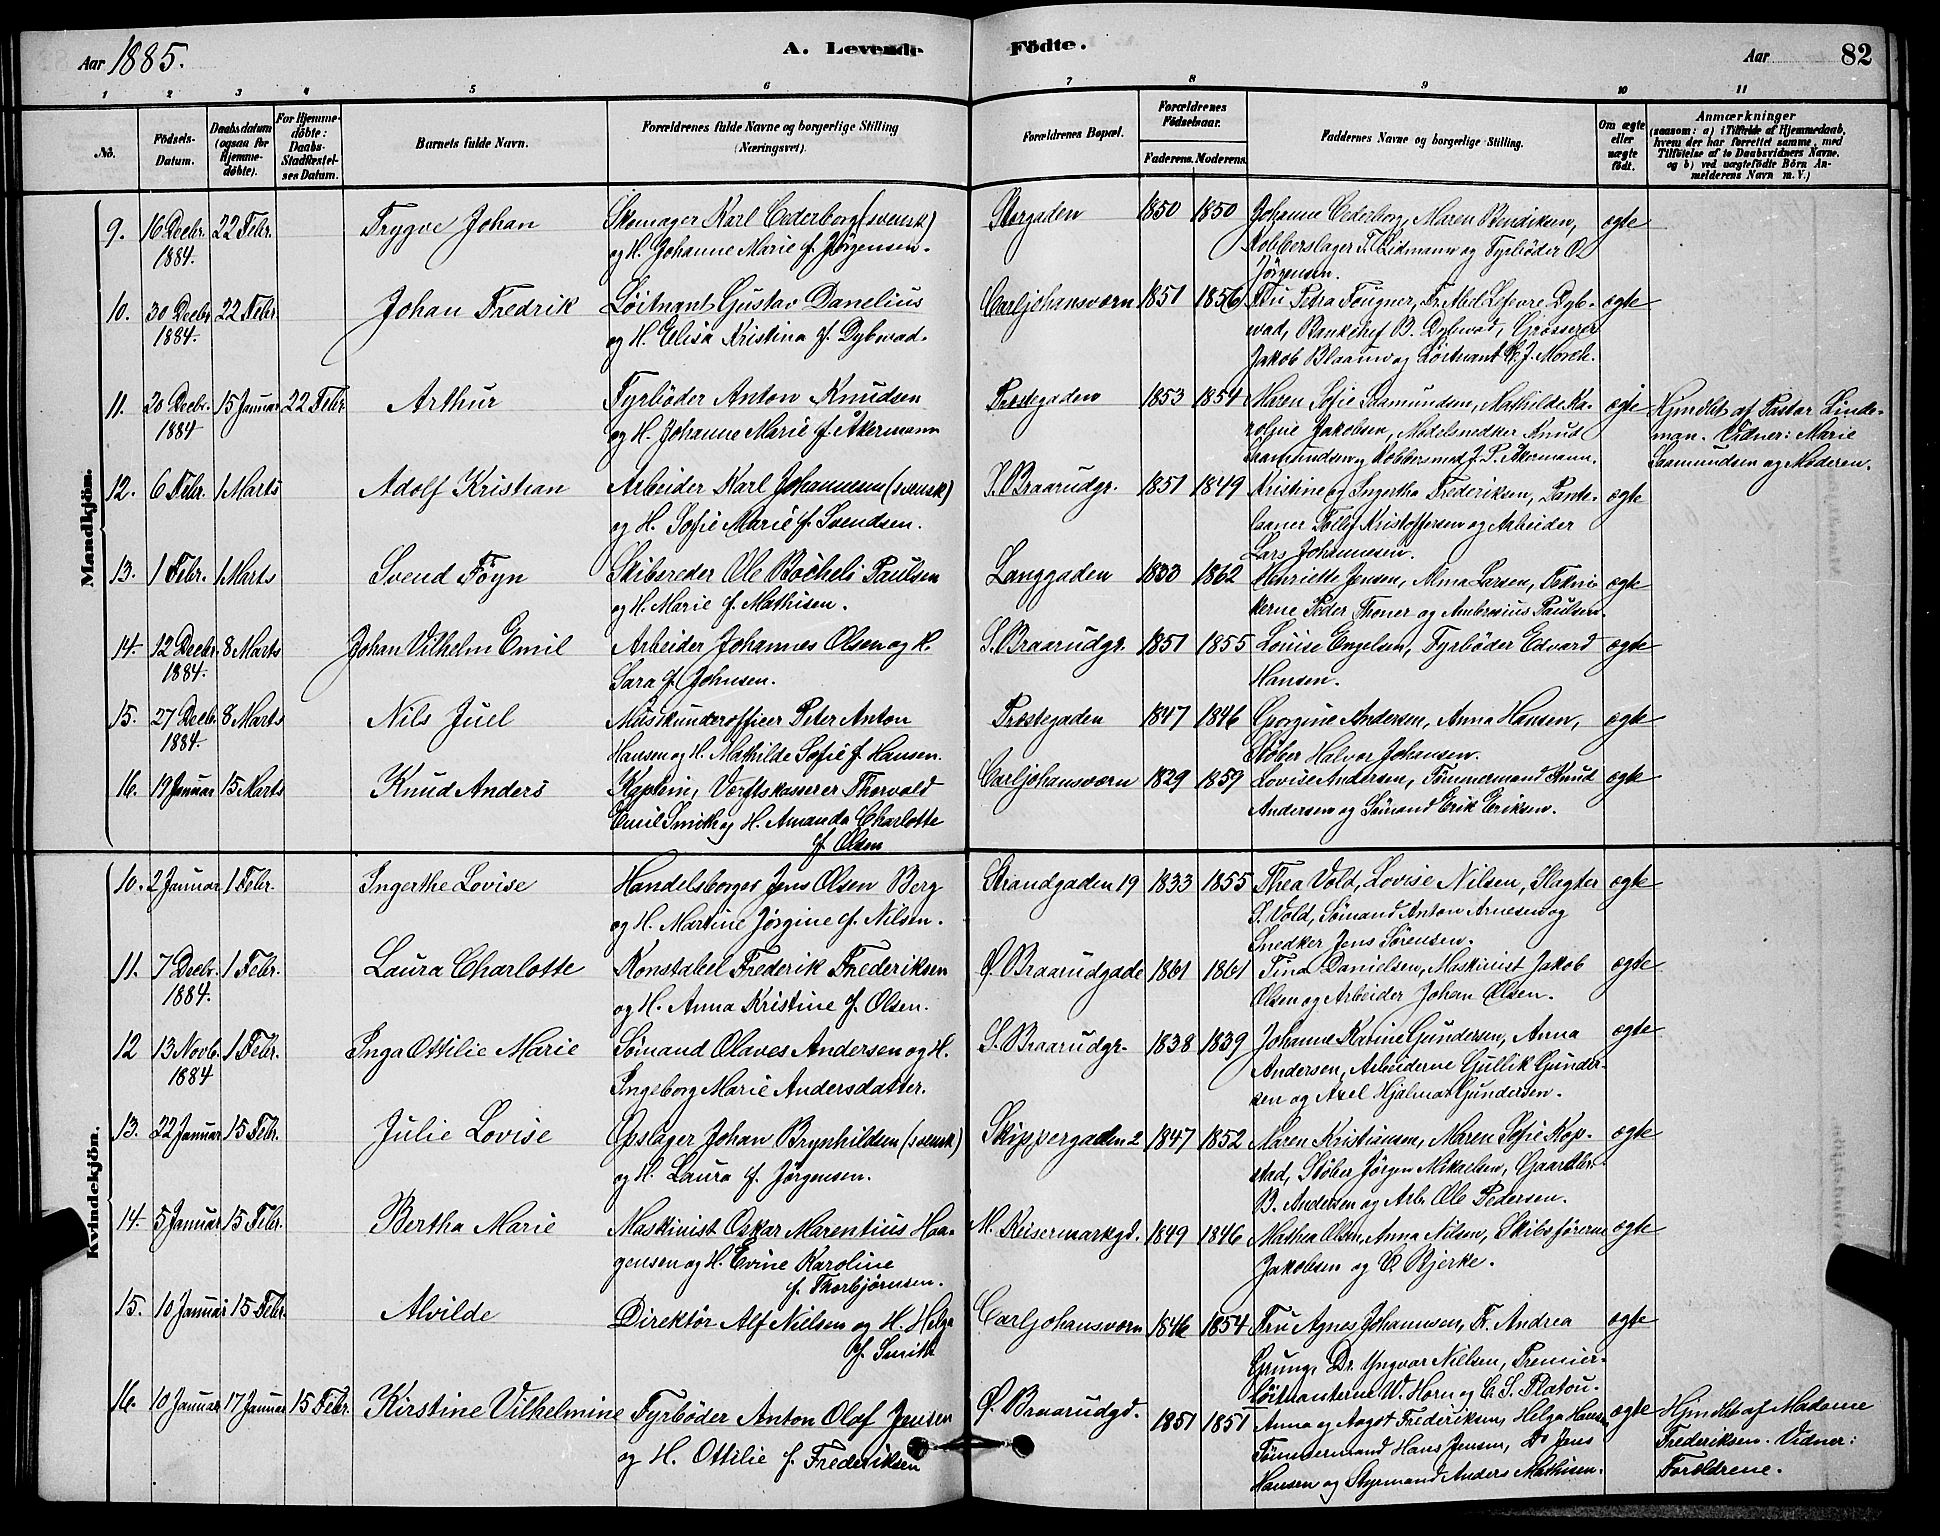 Aar 1885.
A. Levende Födte.
Aar 82
1 2 3 4 5 6 7 8 9 10 11
No.
Födsels-Datum.
Daabsdatum (ogsaa for Hjemme-døbte).
For Hjemme-døbte: Daabs-Stadfæstel-ses Datum.
Barnets fulde Navn.
Forældrenes fulde Navne og borgerlige Stilling (Næringsvei).
Forældrenes Bopæl.
Forældrenes Födselsaar.
Faderens. Moderens.
Faddernes Navne og borgerlige Stilling.
Om ægte eller uægte födt.
Anmærkninger
(saasom: a) i Tilfælde af Hjemmedaab,
hvem der har forrettet samme, med
Tilföielse af to Daabsvidners Navne,
og b) ved uægtefödte Börn An-
melderens Navn m. V.)
Mandkjön.
9. 16 Decbr. 22 Febr. Trygve Johan Skomager Karl Cederborg (svensk) Storgaden 1850 1850 Johanne Cederborg, Maren Bendiksen, ægte
1884. og H. Johanne Marie f. Jørgensen. Kobberslager T. Lidmann og Fyrbøder O.
Jörgensen.
10. 30 Decbr. 22 Febr. Johan Fredrik Löitnant Gustav Danelius Carljohansværn 1851 1856 Fru Petra Fougner, Fr. Abel Lefevre Dyb- ægte
1884. og H. Elisa Kristina f. Dybwad. wad, Bankchef B. Dybwad, Grosserer
Jakob Blaauw og Löitnant C. J. Morch.
11. 20 Decbr. 15 Januar 22 Febr. Arthur Fyrbøder Anton Knudsen Prestegaden 1853 1854 Maren Sofie Saamundsen, Mathilde Ka- ægte Hjmdbt af Pastor Linde-
1884 og H. Johanne Marie f. Åkermann roline Jakobsen, Modelsnedker Knud man. Vidner: Marie
Saamundsen og Kobbersmed J. P. Åkermann. Saamundsen og Moderen.
12. 6 Febr. 1 Marts Adolf Kristian Arbeider Karl Johannesen (svensk) S. Braarudgr. 1851 1849 Kristine og Ingertha Frederiksen, Pante- ægte
og H. Sofie Marie f. Svendsen. laaner Tollef Kristoffersen og Arbeider
Lars Johannesen.
13. 1 Febr. 1 Marts Svend Föyn Skibsreder Ole Bochels Paulsen Langgaden 1833 1862 Henriette Jensen, Alma Larsen, Tekni- ægte
og H. Marie f. Mathisen. kerne Peder Thoner og Ambrosius Paulsen.
14. 12 Decbr. 8 Marts Johan Vilhelm Emil Arbeider Johannes Olsen og H. S. Braarudgr. 1851 1855 Louise Engelsen, Fyrbøder Edvard ægte
1884. Sara f. Johnsen. Hansen.
15. 27 Decbr. 8 Marts Nils Juel Maskunderofficer Peter Anton Prestegaden 1847 1846 Georgine Andersen, Anna Hansen, ægte
1884. Hansen og H. Mathilde Sofie f. Hansen. Støber Halvor Johansen.
16. 19 Januar 15 Marts Knud Anders Kaptein, Værftskasserer Thorvald Carljohansværn 1829 1859 Lovise Andersen, Tömmermand Knud ægte
Emil Smith og H. Amanda Charlotte Andersen og Sömand Erik Eriksen.
f. Olsen
Kvindekjön.
10. 2 Januar 1 Febr. Ingerthe Lovise Handelsborger Jens Olsen Berg Strandgaden 19 1833 1855 Thea Vold, Lovise Nilsen, Slagter ægte
og H. Martine Jørgine f. Nilsen. S. Vold, Sömand Anton Arnesen og
Snedker Jens Sørensen.
11. 7 Decbr. 1 Febr. Laura Charlotte Konstabel Frederik Frederiksen Ø. Braarudgade 1861 1861 Tina Danielsen, Maskinist Jakob ægte
1884. og H. Anna Kristine f. Olsen. Olsen og Arbeider Johan Olsen.
12 13 Novb. 1 Febr. Inga Ottilie Marie Sömand Olaves Andersen og H. S. Braarudgr. 1838 1839 Johanne Karine Gundersen, Anna ægte
1884 Ingeborg Marie Andersdatter. Andersen, Arbeiderne Gullik Gunder-
sen og Axel Hjalmar Gundersen.
13. 22 Januar 15 Febr. Julie Lovise Opslager Johan Brynhildsen (svensk) Skippergaden 2 1847 1852 Maren Kristiansen, Maren Sofie Kop- ægte
og H. Laura f. Jørgensen. stad, Støber Jörgen Mikaelsen, Gaardbr.
B. Andersen og Arb. Ole Pedersen.
14. 5 Januar 15 Febr. Bertha Marie Maskinist Oskar Marentius Haa- M. Keisermarkgd. 1849 1846 Mathea Olsen, Anna Nilsen, Skibsförerne ægte
gensen og H. Evine Karoline Jakobsen og C. Bjerke.
f. Thorbjørnsen.
15. 10 Januar 15 Febr. Alvilde Direktör Alf Nielsen og H. Helga Carljohansværn 1846 1854 Fru Agnes Johannsen, Fr. Andrea ægte
f. Smith Grung, Dr. Yngvar Nielsen, Premier-
löitnanterne W. Horn og C. S. Platou.
16. 10 Januar 17 Januar 15 Febr. Kirstine Vilhelmine Fyrbøder Anton Olaf Jensen Ø. Braarudgd. 1851 1851 Anna og Aagot Frederiksen, Helga Hansen ægte Hjmdbt af Madame
og H. Ottilie f. Frederiksen Tömmermand Hans Jensen, Do Jens Frederiksen. Vidner:
Hansen og Styrmand Anders Mathisen. Forældrene.